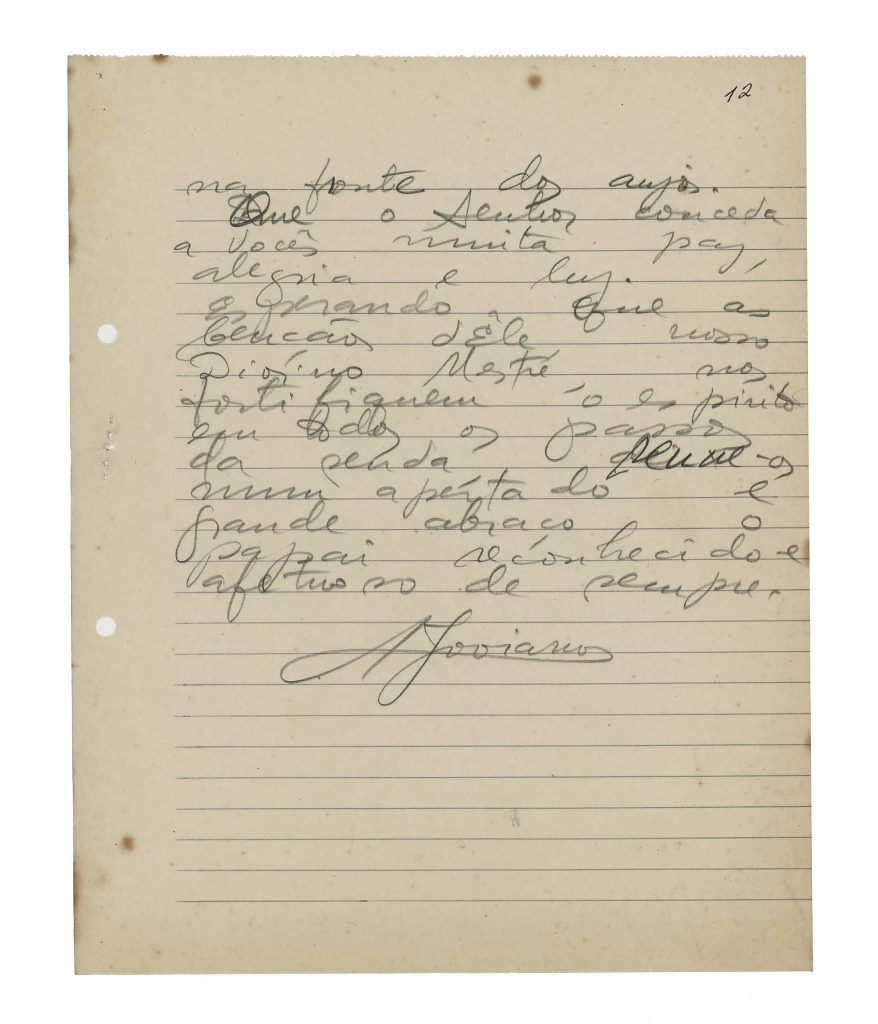 12
na fonte dos anjos.
Que o Senhor conceda
a vocês muita paz,
alegria e luz.
esperando que as
bençãos dêle nosso
Divino Mestre nos
fortifiquem o espírito
em todos os passos
da senda, reune-os
num apertado e
grande abraço o
papai reconhecido e
afetuoso de sempre.
A Joviano